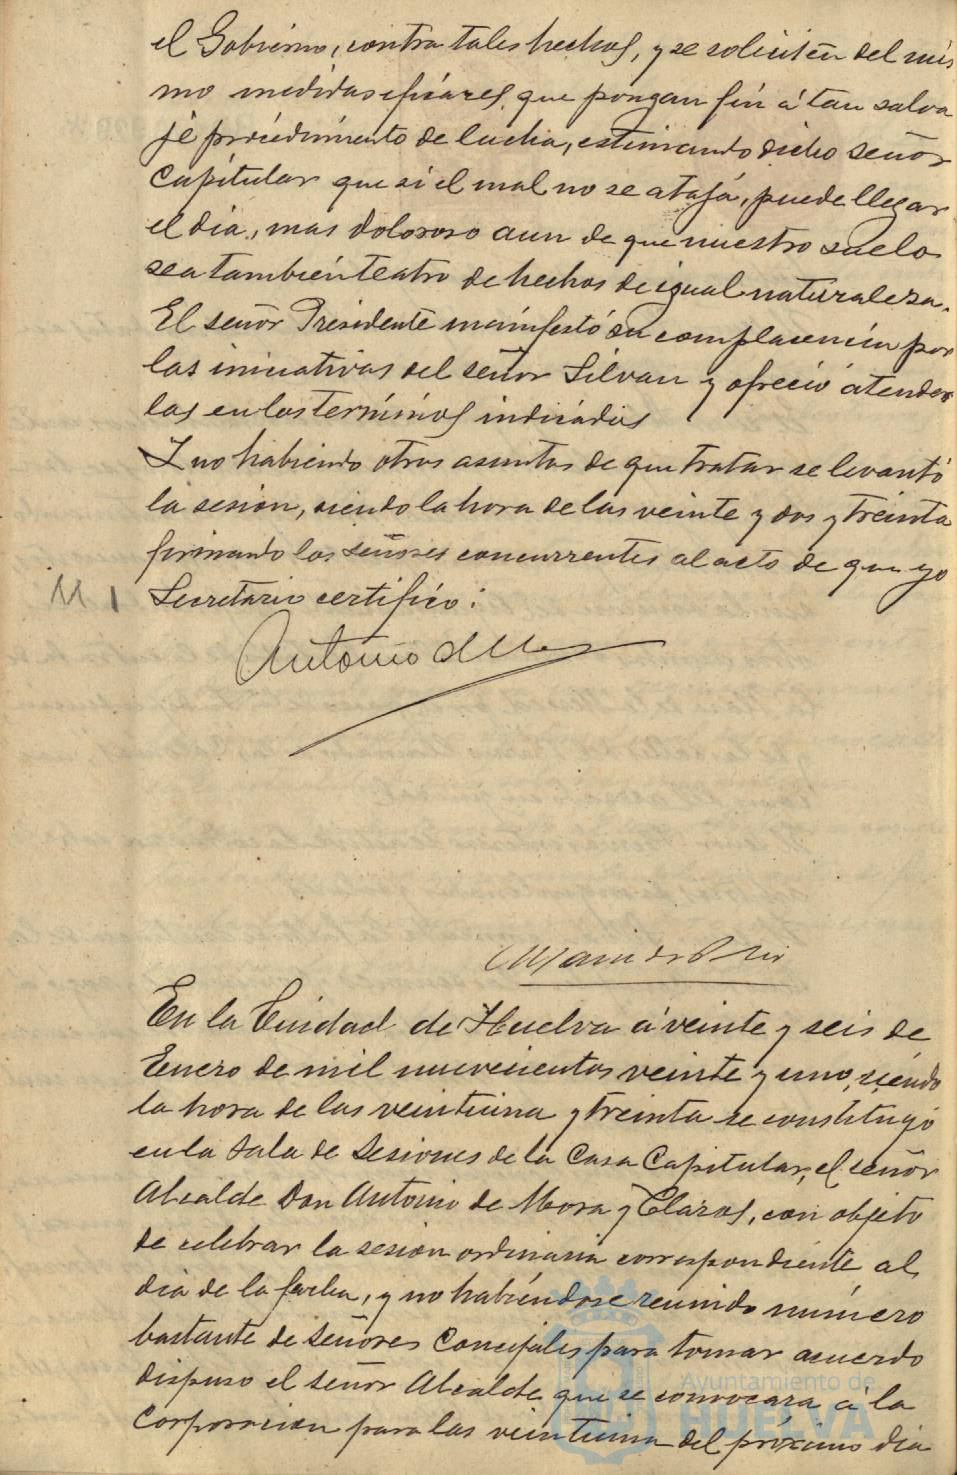 el Gobierno, contra tales hechos, y se soliciten del mis
mo medidas eficaces que pongan fin á tan salva
je procedimiento de lucha, estimando dicho señor
Capitular que si el mal no se ataja, puede llegar
el dia, mas doloroso aun de que nuestro suelo
sea tambien teatro de hechos de igual naturaleza.
El señor Presidente manifestó su complacencia por
las iniciativas del señor Silvan y ofreció atender
las en los terminos indicados
Y no habiendo otros asuntos de que tratar se levantó
la sesion, siendo la hora de las veinte y dos y treinta
firmando los señores concurrentes al acto de que yo
Secretario certifico:
Antonio de
En la Ciudad de Huelva á veinte y seis de
Enero de mil nuevecientos veinte y uno, siendo
la hora de las veintiuna y treinta se constituyó
en la Sala de Sesiones de la Casa Capitular, el señor
Alcalde Don Antonio de Mora y Claros, con objeto
de celebrar la sesion ordinaria correspondiente al
dia de la fecha, y no habiendose reunido número
bastante de señores Concejales para tomar acuerdo
dispuso el señor Alcalde que se convocara á la
Corporacion para las veintiuna del próximo dia
Ayuntamiento de
HUELVA